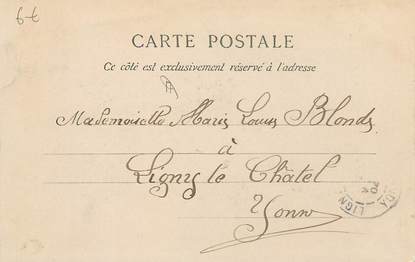 6€
CARTE POSTALE
Ce côté est exclusivement réservé à l'adresse
Mademoiselle Marie Louise Blonds
à
Ligny le Châtel
Yonne
LIGN